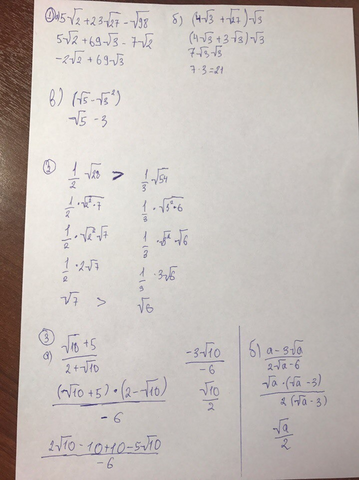 ① а) 5√2 + 23√27 - √98
5√2 + 69√3 - 7√2
-2√2 + 69√3
б) (4√3 + √27)·√3
(4√3 + 3√3)·√3
7√3·√3
7·3=21
в) (√5 - √3²)
√5 - 3
② 1/2 √28 > 1/3 √54
1/2 · √2²·7 1/3 · √3²·6
1/2 · √2²·√7 1/3 · √3²·√6
1/2 · 2√7 1/3 · 3√6
√7 > √6
③
а) (√10 + 5)/(2 + √10)
((√10 + 5)·(2 - √10))/-6
(2√10 - 10 + 10 - 5√10)/-6
-3√10/-6
√10/2
б) (a - 3√a)/(2√a - 6)
(√a · (√a - 3))/(2(√a - 3))
√a/2